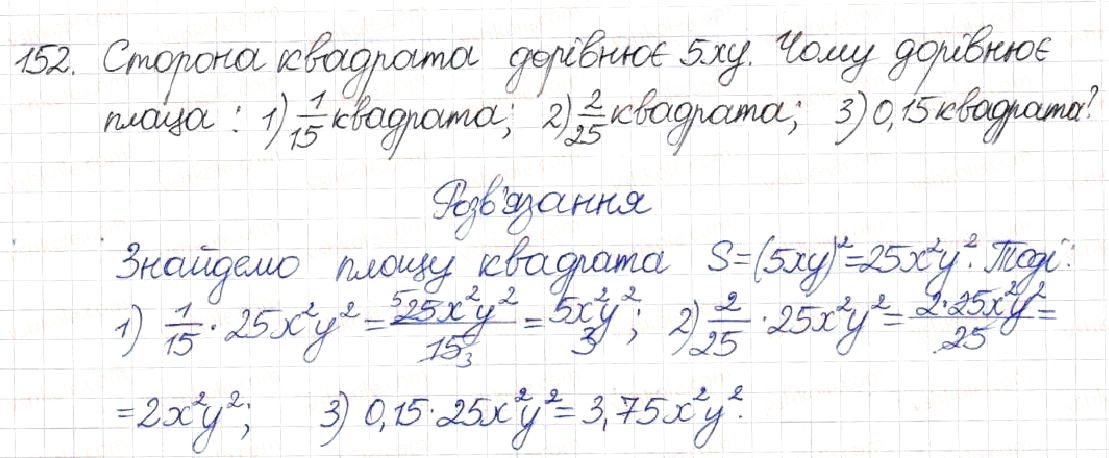 152. Сторона квадрата дорівнює 5xy. Чому дорівнює
площа : 1) 1/15 квадрата; 2) 2/25 квадрата; 3) 0,15 квадрата?
Розв'язання
Знайдемо площу квадрата S=(5xy)²=25x²y². Тоді:
1) 1/15 · 25x²y² = ⁵25x²y²/15₃ = 5x²y²/3; 2) 2/25 · 25x²y² = 2·25x²y²/25 =
=2x²y²; 3) 0,15·25x²y²= 3,75x²y².